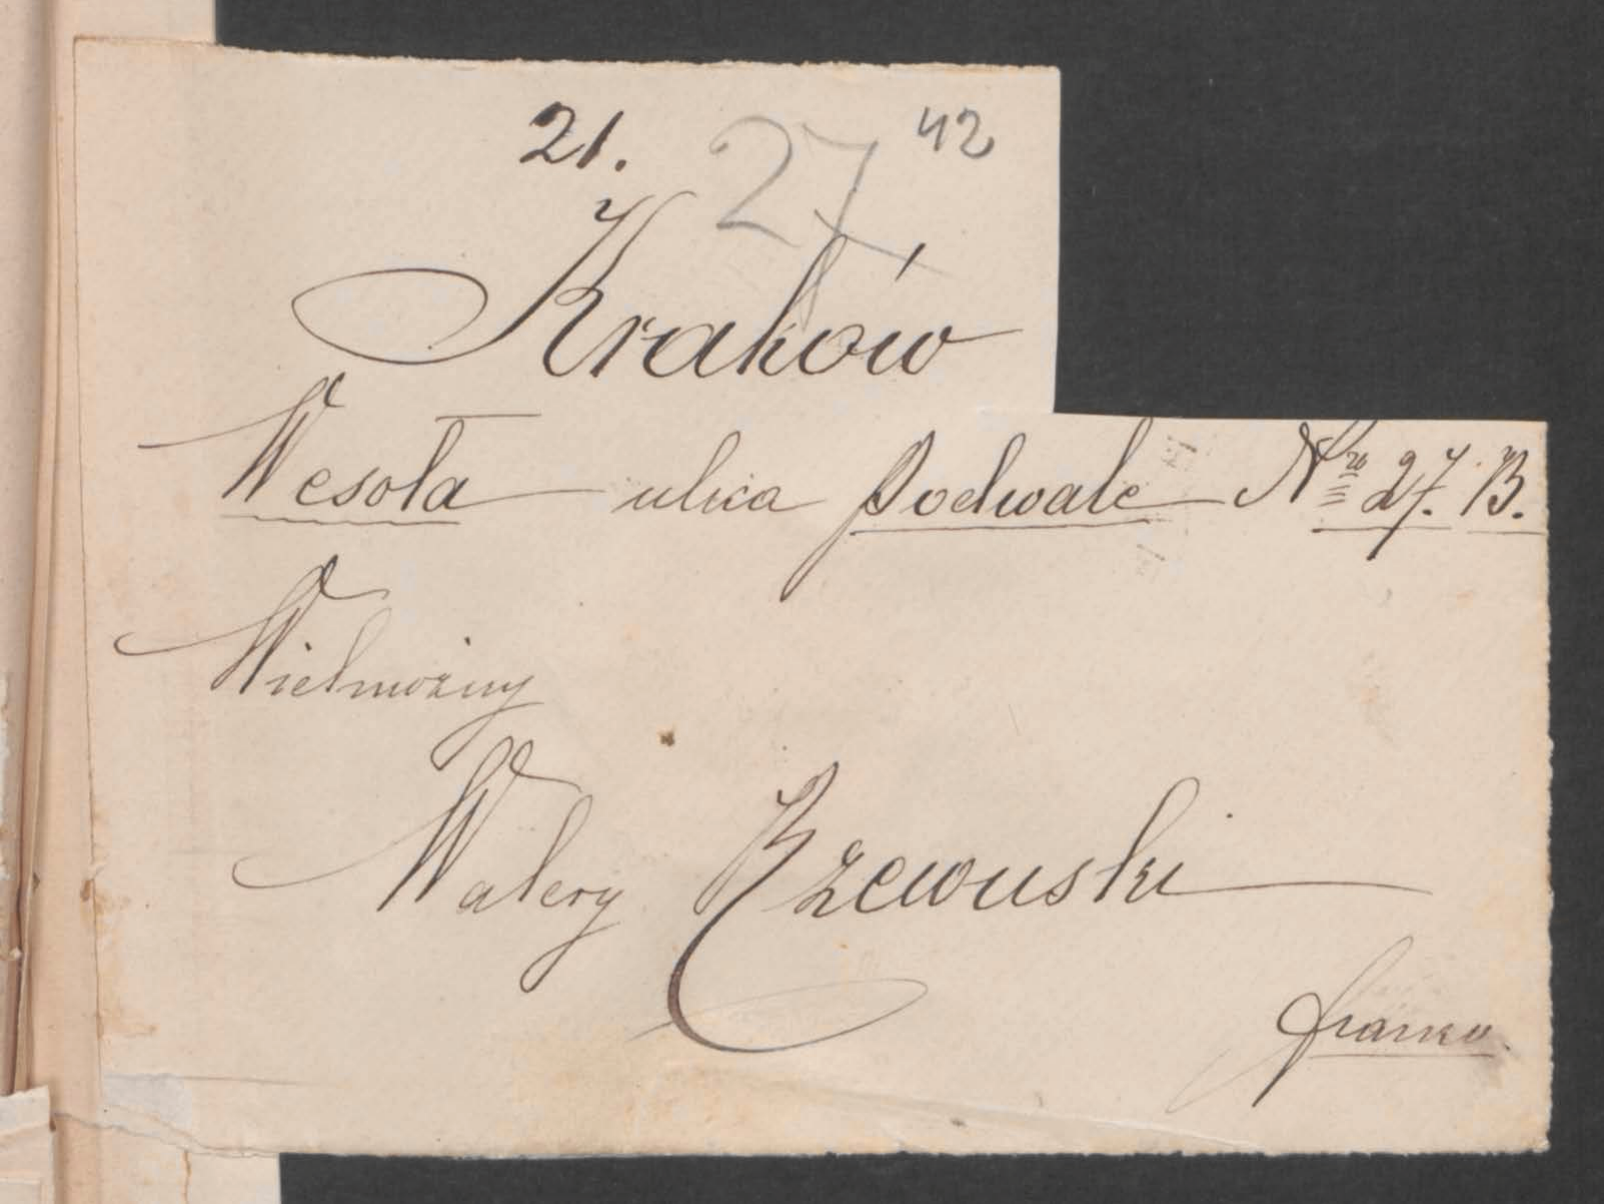 21. 27 42
Kraków
Wesoła ulica Podwale Nro 27. B.
Wielmożny
Walery Rzewuski
franko.